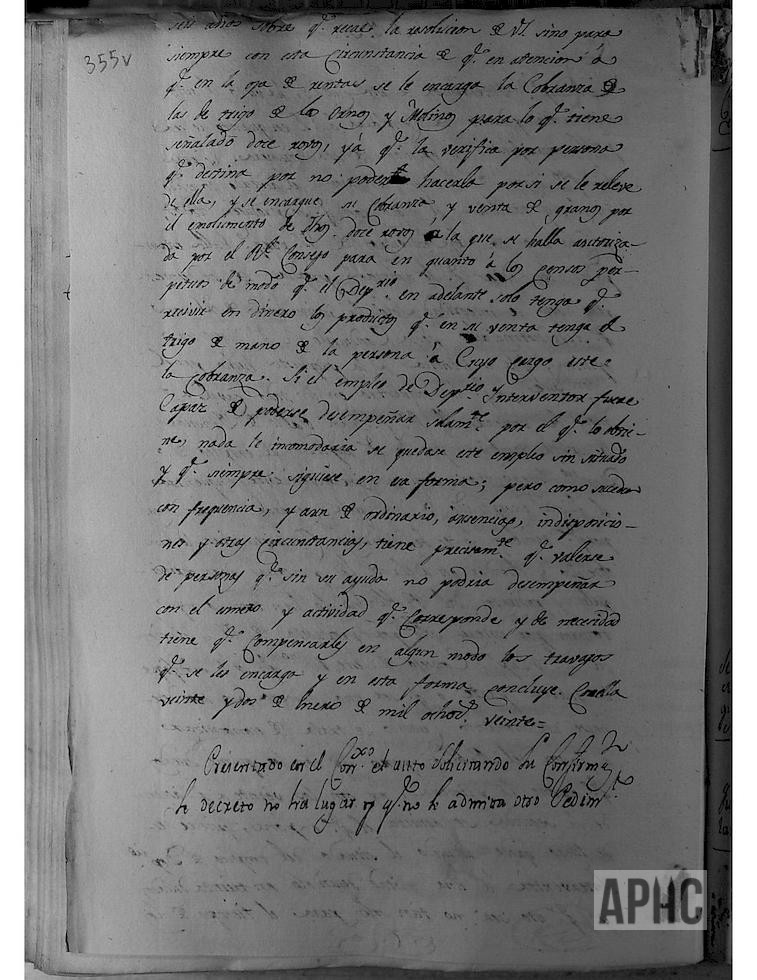 355v
seis años sobre q.e recae la resolucion de V.I. sino para
siempre con esta Circunstancia de q.e en atencion á
q.e en la oja de rentas se le encarga la Cobranza de
las de trigo de los Ornos y Molinos para lo q.e tiene
señalado doce rovos, yá q.e la verifica por persona
q.e destina por no poder hacerlo por si se le releve
de ella, y se encargue su Cobranza y venta de granos por
el emolumento de dhos. doce rovos a la que se halla autoriza-
da por el R.l Consejo para en quanto á los pensos per-
petuos de modo q.e el Dep.rio en adelante solo tenga q.e
recivir en dinero los productos q.e en su venta tenga el
trigo de mano de la persona á Cuyo cargo este
la Cobranza. Si el empleo de Dep.rio Interventor fuere
Capaz de poderse desempeñar solam.te por el q.e lo obtie-
ne, nada le incomodaria se quedase este empleo sin situado
y q.e siempre siguiese en esa forma; pero como sucede
con frequencia, y aun de ordinario, ausencias, indisposicio-
nes y otras circunstancias, tiene precisam.te q.e valerse
de personas q.e sin su ayuda no podria desempeñar
con el esmero y actividad q.e Corresponde y de necesidad
tiene q.e Compensarles en algun modo los travajos
q.e se les encarga y en esta forma concluye. Corella
veinte y dos de Enero de mil ochoc.s veinte=
Presentado en el Con.xo el auto solicitando su Confirm.n
se decreto no ha lugar y q.e no se admita otro Pedim.to
APHC